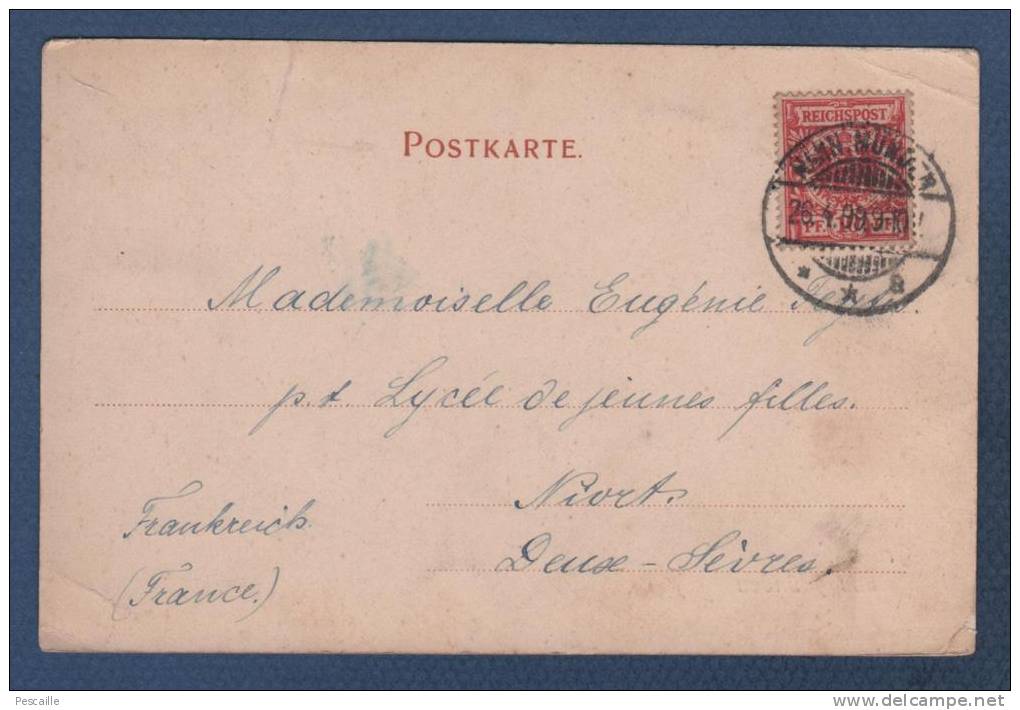 POSTKARTE.
REICHSPOST
HANN. MÜNDEN
26.4.99.9-10V
PF
* * a
Mademoiselle Eugénie
p.t. Lycée de jeunes filles.
Niort.
Deux-Sèvres.
Frankreich.
(France.)
Pescaille
www.delcampe.net